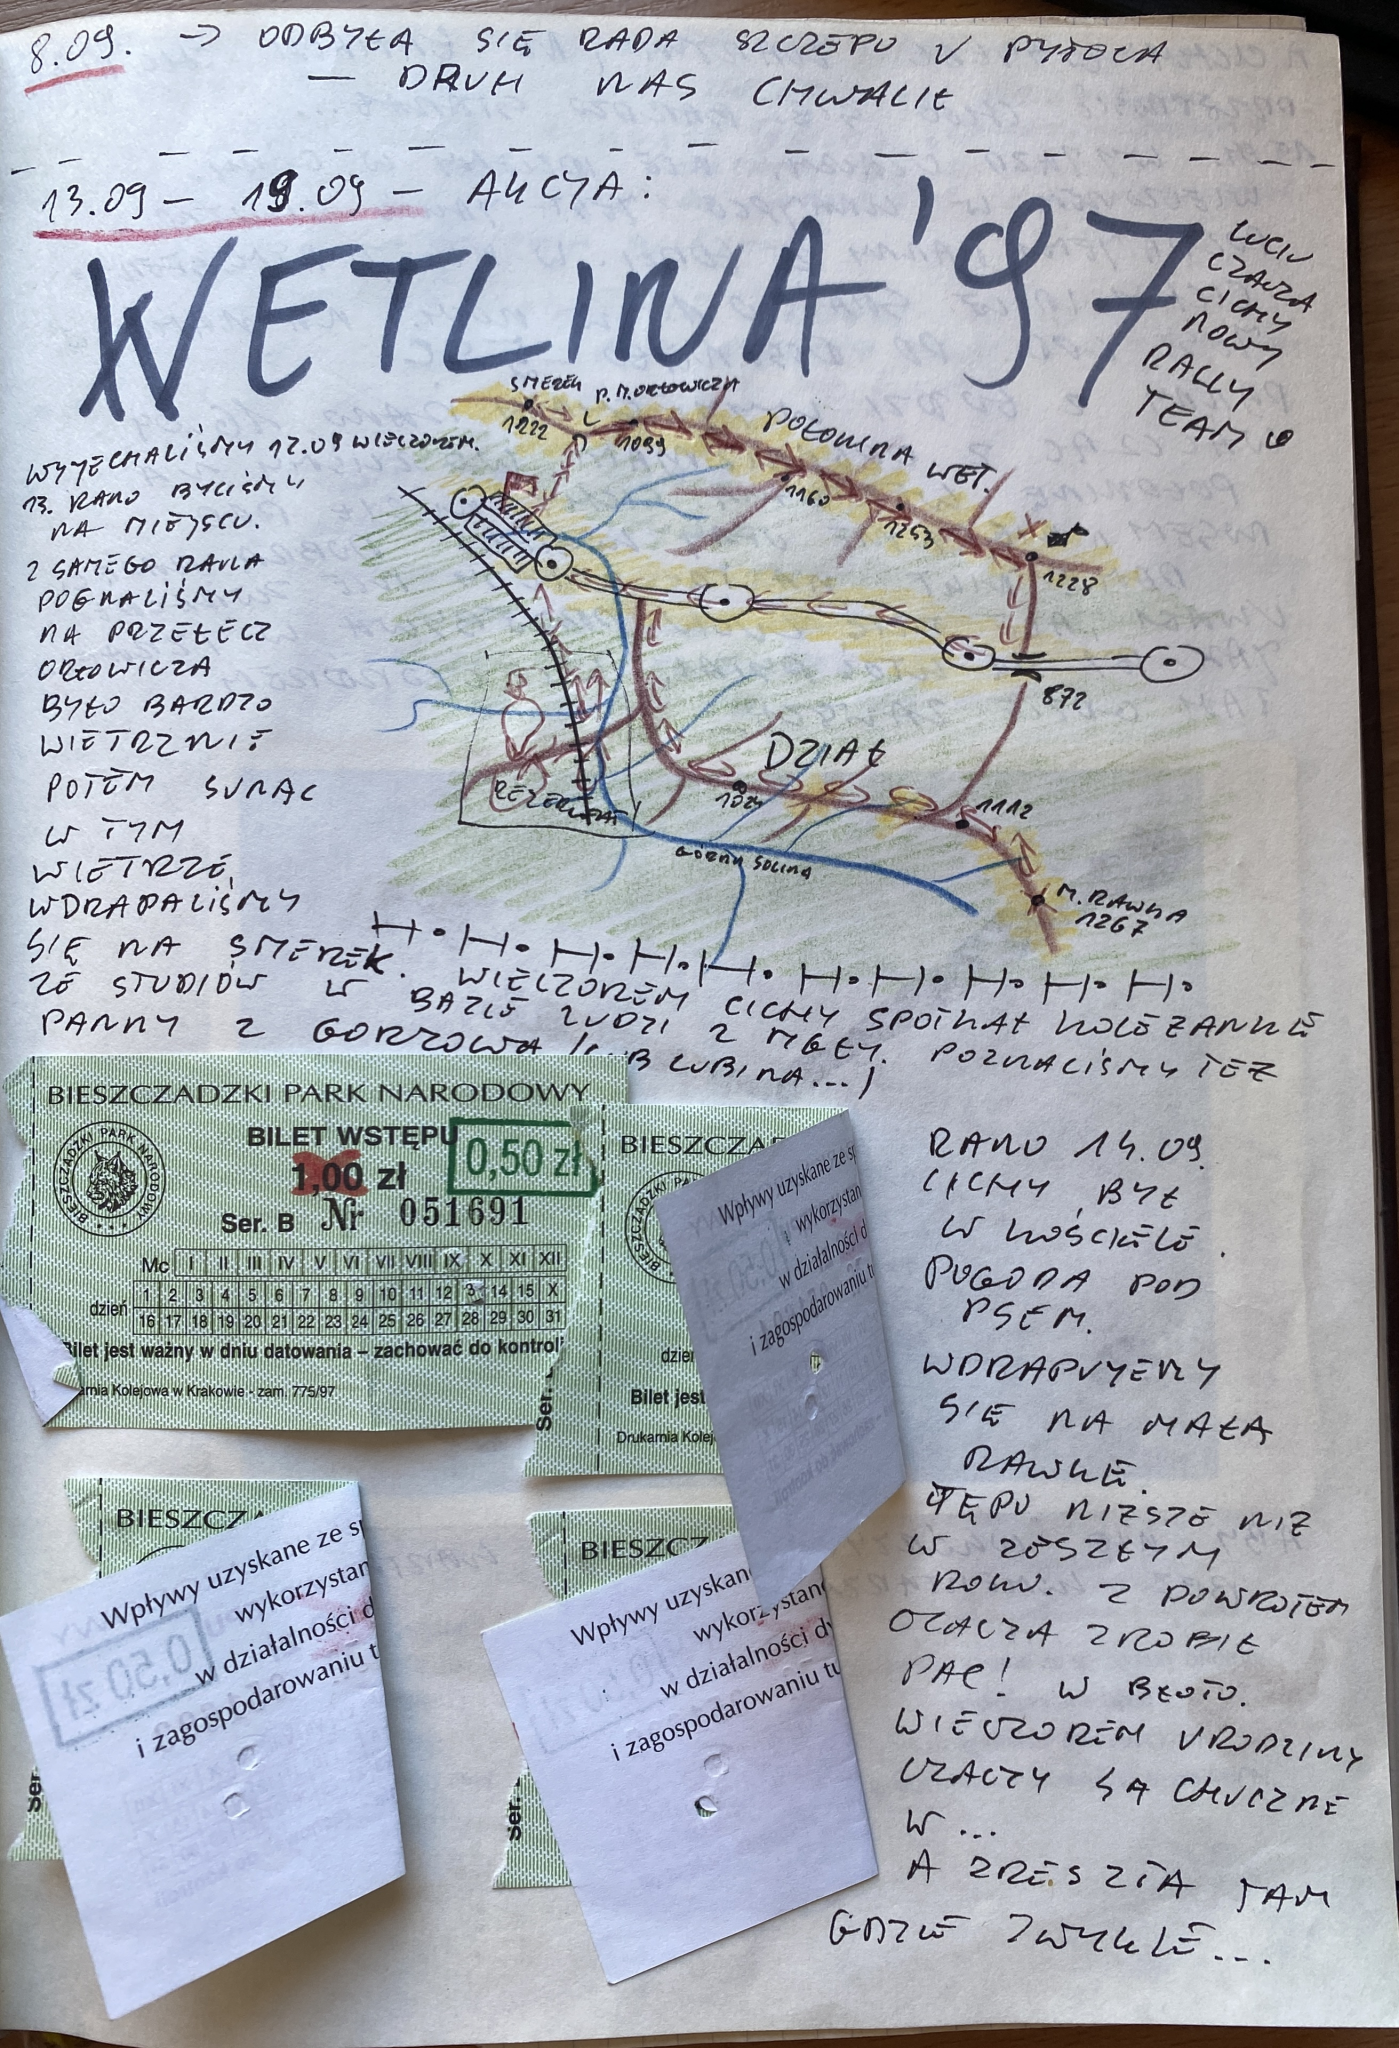 8.09. → ODBYŁA SIĘ RADA SZCZEPU U PYTOCA
— DRUH NAS CHWALIŁ
13.09 – 19.09 – AKCJA:
WETLINA '97
LUCIU
CZACZA
CICHY
NOWY
RALLY
TEAM
WYJECHALIŚMY 12.09 WIECZOREM.
13. RANO BYLIŚMY
NA MIEJSCU.
Z SAMEGO RANA
POGNALIŚMY
NA PRZEŁĘCZ
ORŁOWICZA
BYŁO BARDZO
WIETRZNIE
POTEM SUNĄC
W TYM
WIETRZE
WDRAPALIŚMY
SIĘ NA SMEREK. WIECZOREM CICHY SPOTKAŁ KOLEŻANKĘ
ZE STUDIÓW W BAZIE LUDZI Z MGŁY. POZNALIŚMY TEŻ
PANNY Z GORZOWA (LUB LUBINA...)
SMEREK
1222
P. M. ORŁOWICZA
1099
POŁONINA WET.
1160
1253
1228
872
DZIAŁ
1112
M. RAWKA
1267
GÓRNA SOLINA
REZERWAT
BIESZCZADZKI PARK NARODOWY
BIESZCZADZKI PARK NARODOWY
BILET WSTĘPU
1,00 zł
0,50 zł
Ser. B Nr 051691
Mc I II III IV V VI VII VIII IX X XI XII
dzień
1 2 3 4 5 6 7 8 9 10 11 12 3 14 15 X
16 17 18 19 20 21 22 23 24 25 26 27 28 29 30 31
Bilet jest ważny w dniu datowania – zachować do kontrol
arnia Kolejowa w Krakowie - zam. 775/97
BIESZCZA
dzień
Bilet jest
Drukarnia Kolej
Ser.
Wpływy uzyskane ze sp
wykorzystan
w działalności d
i zagospodarowaniu tu
BIESZCZA
Ser.
Wpływy uzyskane ze sp
wykorzystan
w działalności d
i zagospodarowaniu t
0,50 zł
BIESZCZ
Ser.
Wpływy uzyskan
wykorzystane
w działalności dy
i zagospodarowaniu tu
RANO 14.09.
CICHY BYŁ
W KOŚCIELE.
POGODA POD
PSEM.
WDRAPUJEMY
SIĘ NA MAŁĄ
RAWKĘ.
TĘPO NIŻSZE NIŻ
W ZESZŁYM
ROKU. Z POWROTEM
CZACZA ZROBIŁ
PAC! W BŁOTO.
WIECZOREM URODZINY
CZACZY SĄ CHUCZNE
W ...
A ZRESZTĄ TAM
GDZIE ZWYKLE...